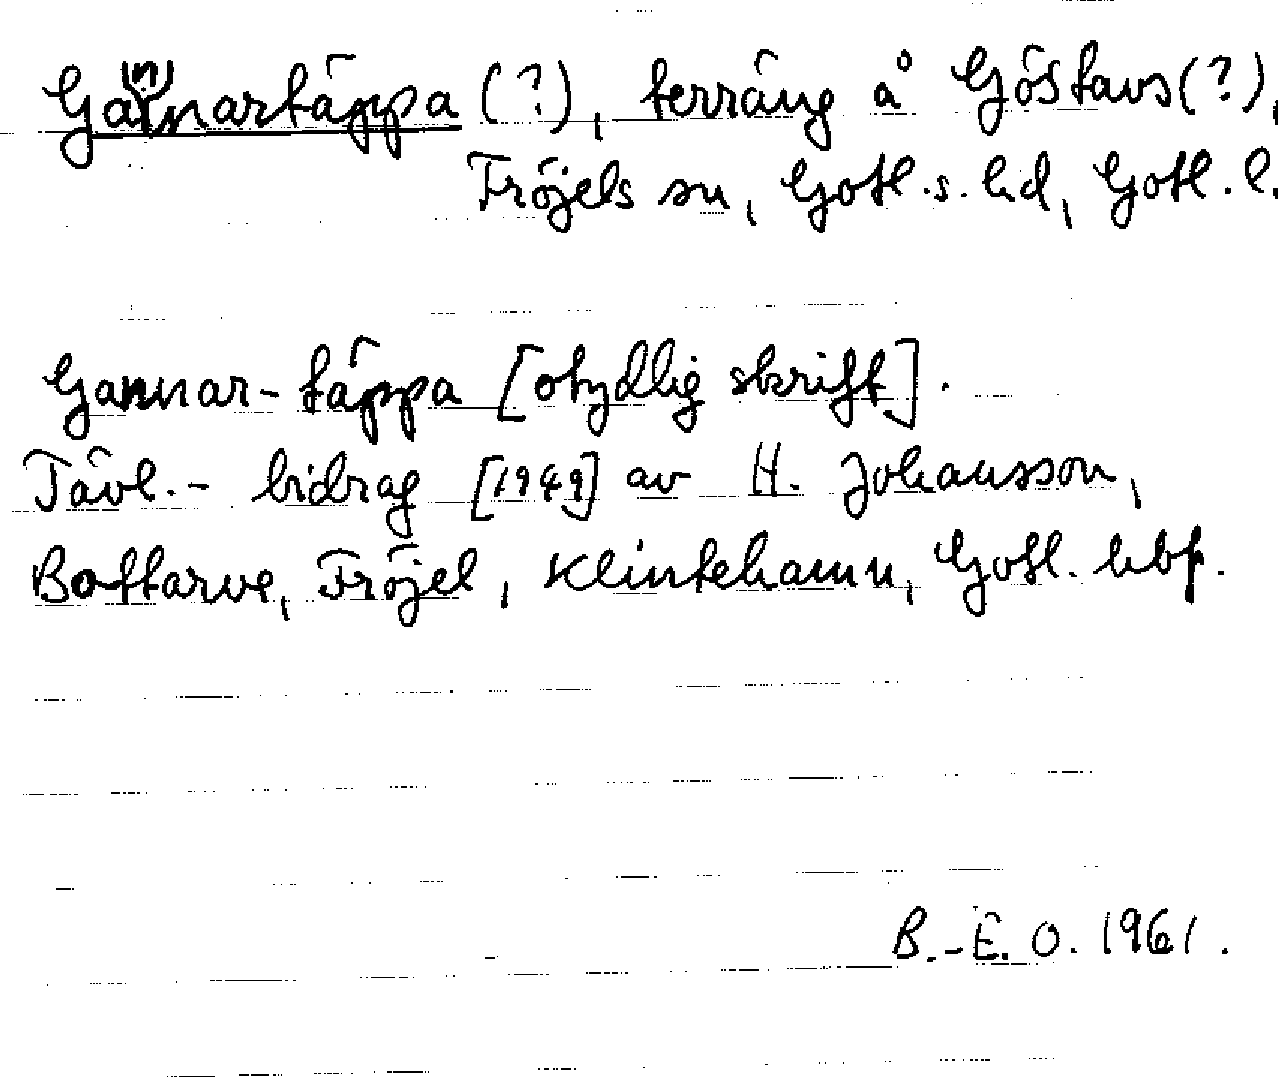 Ga(n)nartäppa (?), terräng å Göstavs (?),
Fröjels sn, Gotl. s. hd, Gotl. l.
Gannar-täppa [otydlig skrift].
Tävl.- bidrag [1949] av H. Johansson,
Bottarve, Fröjel, Klintehamn, Gotl. hbf.
B.-E. O. 1961.